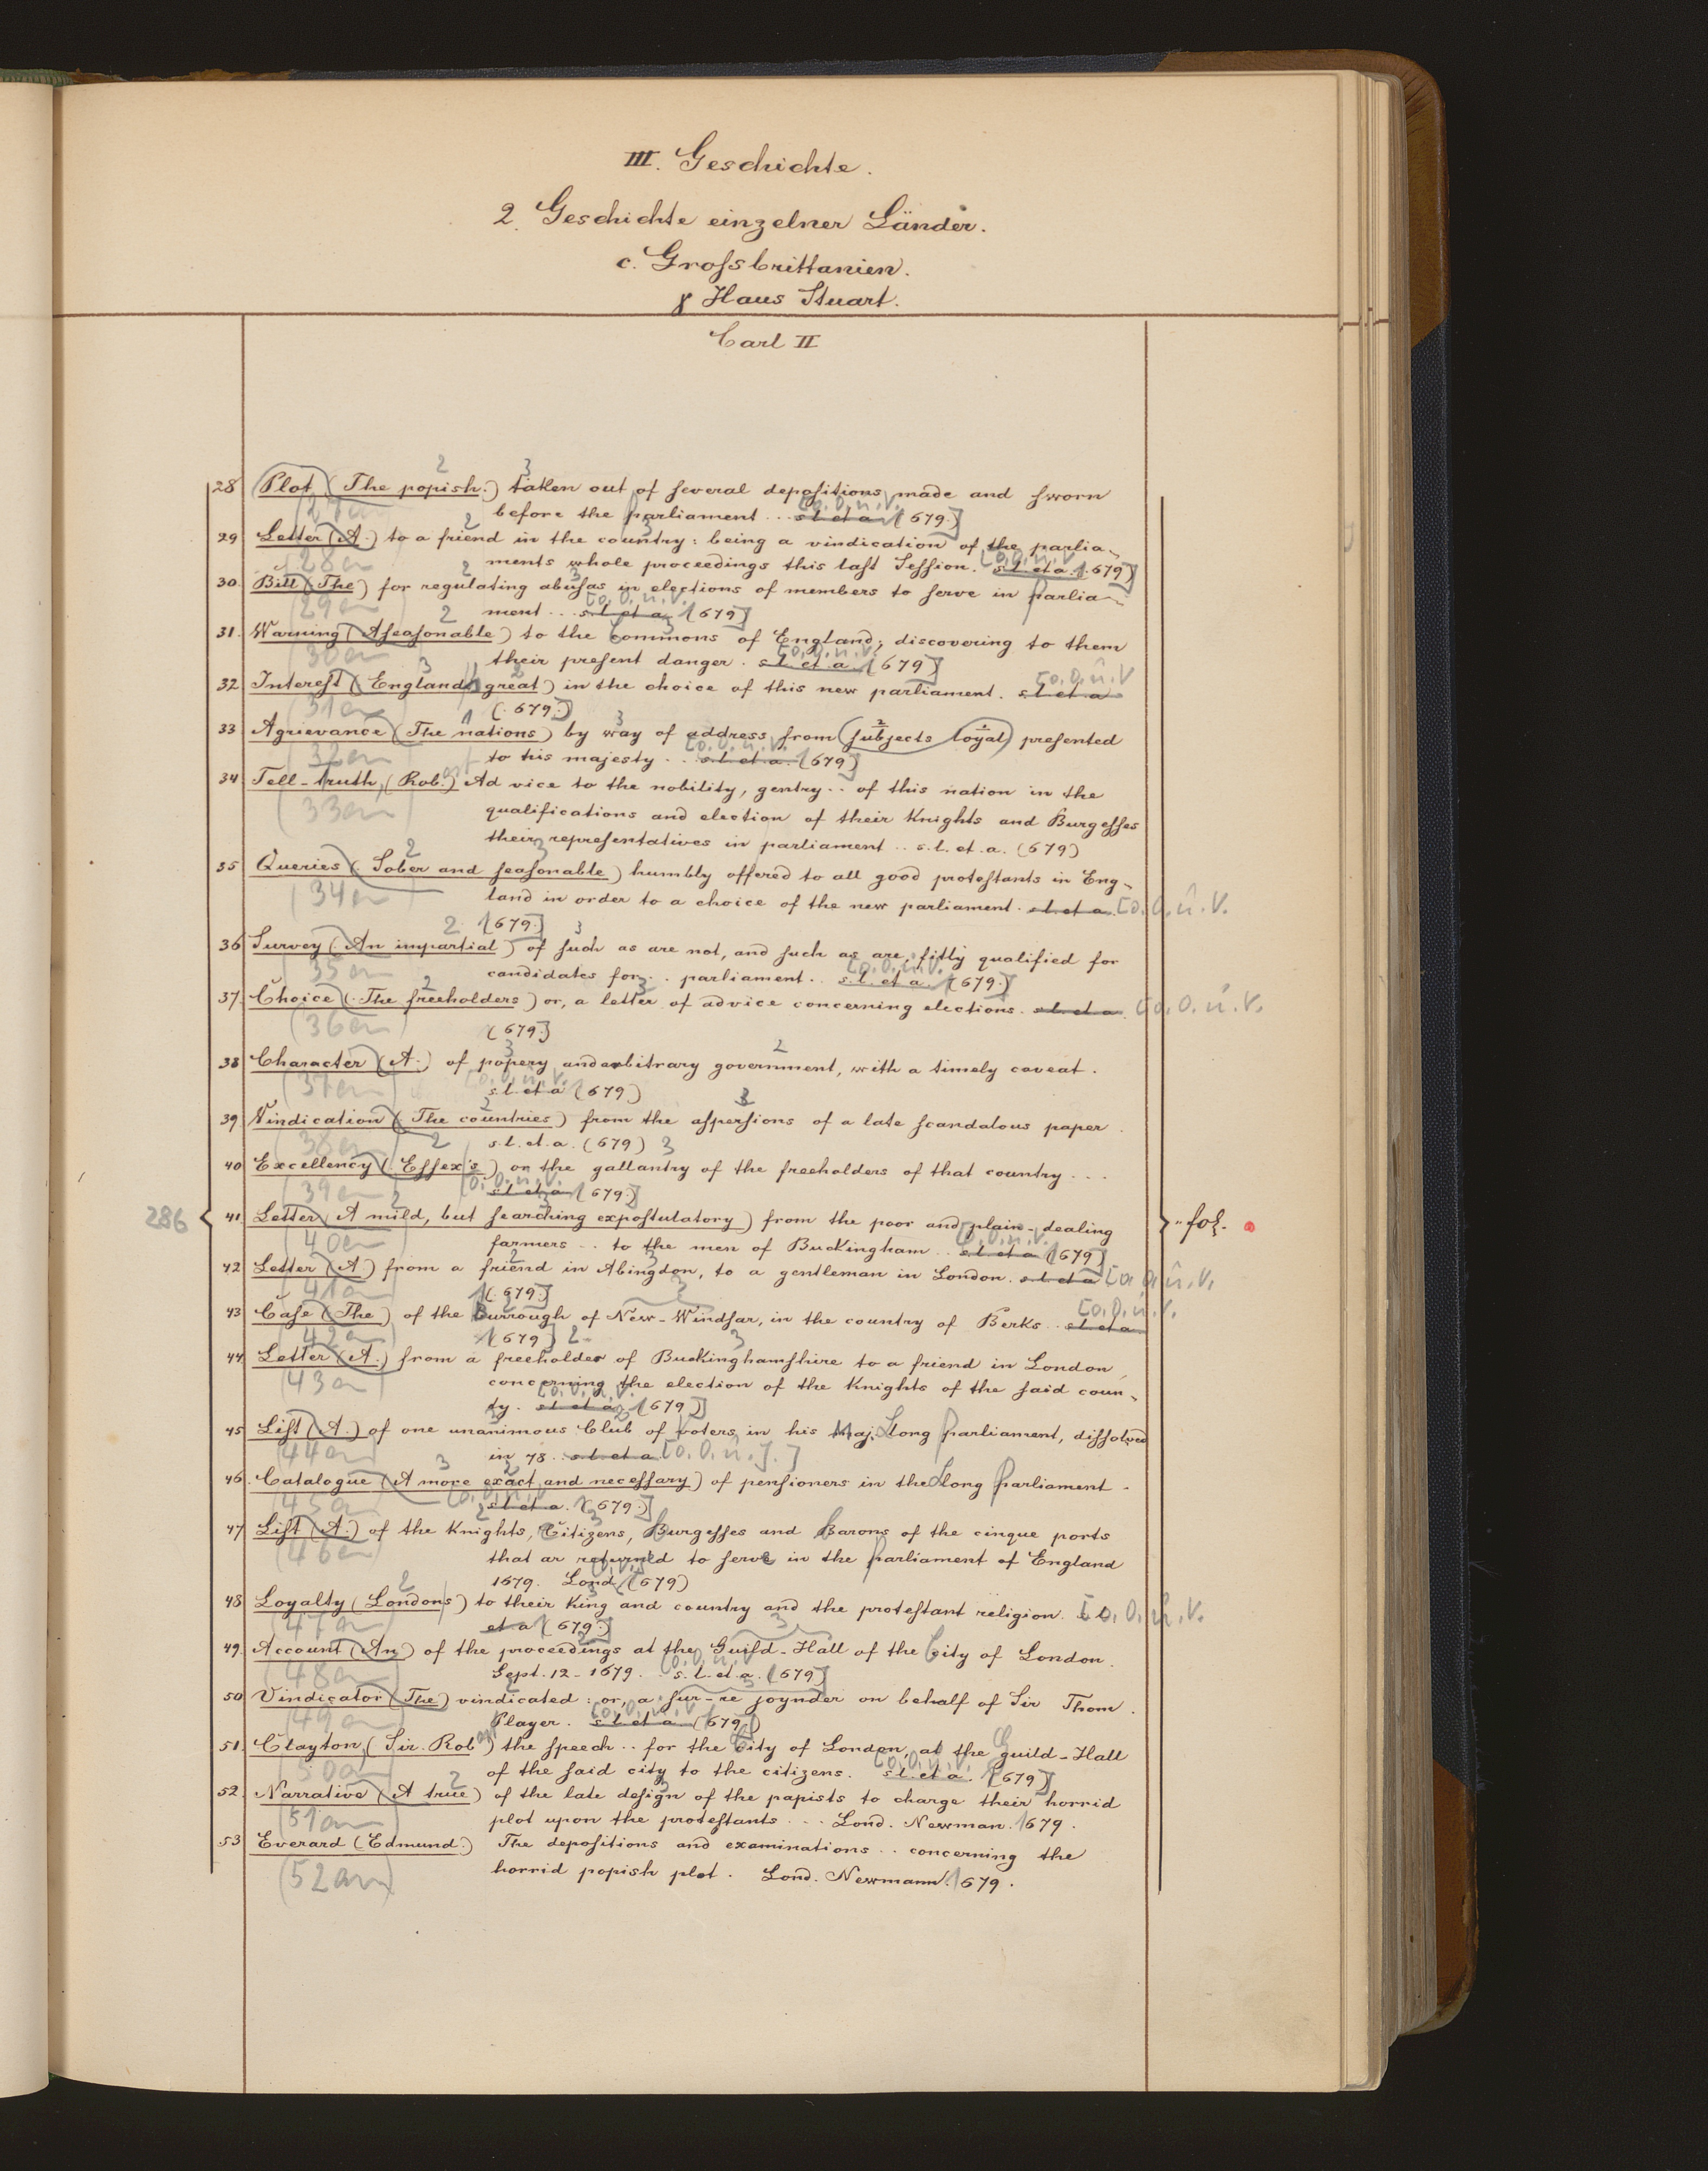 III. Geschichte.
2. Geschichte einzelner Länder.
c. Grossbrittanien.
γ Haus Stuart.
Carl II
28 Plot (The popish.) taken out of several depositions made and sworn
before the parliament .. s. l. et a. (679.) [o. O. u. V.
29 Letter (A.) to a friend in the country: being a vindication of the parlia-
ments whole proceedings this last Session. s. l. et a. (1679) [o. O. u. V.
30. Bill (The) for regulating abuses in elections of members to serve in parlia-
ment .. s. l. et a. (1679) [o. O. u. V.
31. Warning (A seasonable) to the Commons of England; discovering to them
their present danger. s. l. et a. (1679) [o. O. u. V.
32 Interest (Englands great) in the choice of this new parliament. s. l. et a. [o. O. u. V
(. 679.)
33 Agrievance (The nations) by way of address from (subjects loyal) presented
to his majesty .. s. l. et a. (1679) [o. O. u. V.
34 Tell-truth, (Rob.) Ad vice to the nobility, gentry .. of this nation in the
qualifications and election of their Knights and Burgesses
their representatives in parliament .. s. l. et. a. (679)
35 Queries (Sober and seasonable) humbly offered to all good protestants in Eng-
land in order to a choice of the new parliament. s. l. et a. [o. O. u. V.
(1679.]
36 Survey (An impartial) of such as are not, and such as are, fitly qualified for
candidates for .. parliament .. s. l. et a. (1679.) [o. O. u. V.
37. Choice (The freeholders) or, a letter of advice concerning elections. s. l. et a. [o. O. u. V.
(1679.]
38 Character (A.) of popery and arbitrary government, with a timely caveat.
s. l. et a (1679) [o. O. u. V.
39 Vindication (The countries) from the aspersions of a late scandalous paper.
s. l. et. a. (679)
40 Excellency (Essex's) or the gallantry of the freeholders of that country ...
s. l. et a (1679.] [o. O. u. V.
286
41. Letter (A mild, but searching expostulatory) from the poor and plain-dealing
farmers .. to the men of Buckingham .. s. l. et a (1679] [o. O. u. V.
„ fol.
42 Letter (A) from a friend in Abingdon, to a gentleman in London. s. l. et a [o. O. u. V.
1(. 679.]
43 Case (The) of the Burrough of New-Windsar, in the country of Berks .. s. l. et a. [o. O. u. V.
1(679]
44 Letter (A.) from a freeholder of Buckinghamshire to a friend in London,
concerning the election of the Knights of the said coun-
ty. s. l. et a. (1679) [o. O. u. V.
45 List (A.) of one unanimous Club of Voters in his Maj. Long Parliament, dissolved
in 78 .. s. l. et a. [o. O. u. J.]
46. Catalogue (A more exact and necessary) of pensioners in the Long Parliament.
s. l. et a. (1679.) [o. O. u. V
47 List (A.) of the Knights, Citizens, Burgesses and Barons of the cinque ports
that ar returned to serve in the Parliament of England
1679. Lond. (1679)
48 Loyalty (Londons) to their King and country and the protestant religion. [o. O. u. V.
et a (1679.]
49. Account (An) of the proceedings at the Guild-Hall of the City of London.
Sept. 12-1679. s. l. et. a. (1679] [o. O. u. V
50 Vindicator (The) vindicated: or, a sur-re joynder on behalf of Sir Thom.
Player. s. l. et a (1679) [o. O. u. V
51. Clayton, (Sir. Rob.) the speech .. for the City of London, at the Guild-Hall
of the said city to the citizens. s. l. et a. (1679) [o. O. u. V.
52. Narrative (A true) of the late design of the papists to charge their horrid
plot upon the protestants ... Lond. Newman. 1679.
53 Everard (Edmund.) The depositions and examinations .. concerning the
horrid popish plot. Lond. Newmann. 1679.
(52an)